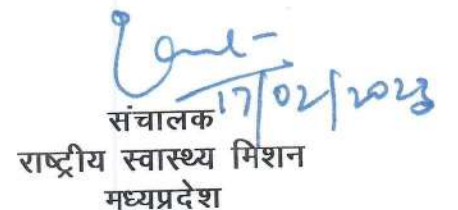 17/02/2023
संचालक
राष्ट्रीय स्वास्थ्य मिशन
मध्यप्रदेश